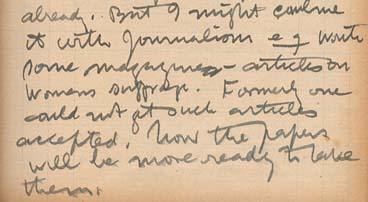 already. But I might combine
it with Journalism e g write
some magazines - articles on
womens suffrage. Formerly one
could not get such articles
accepted. Now the papers
will be more ready to take
them.